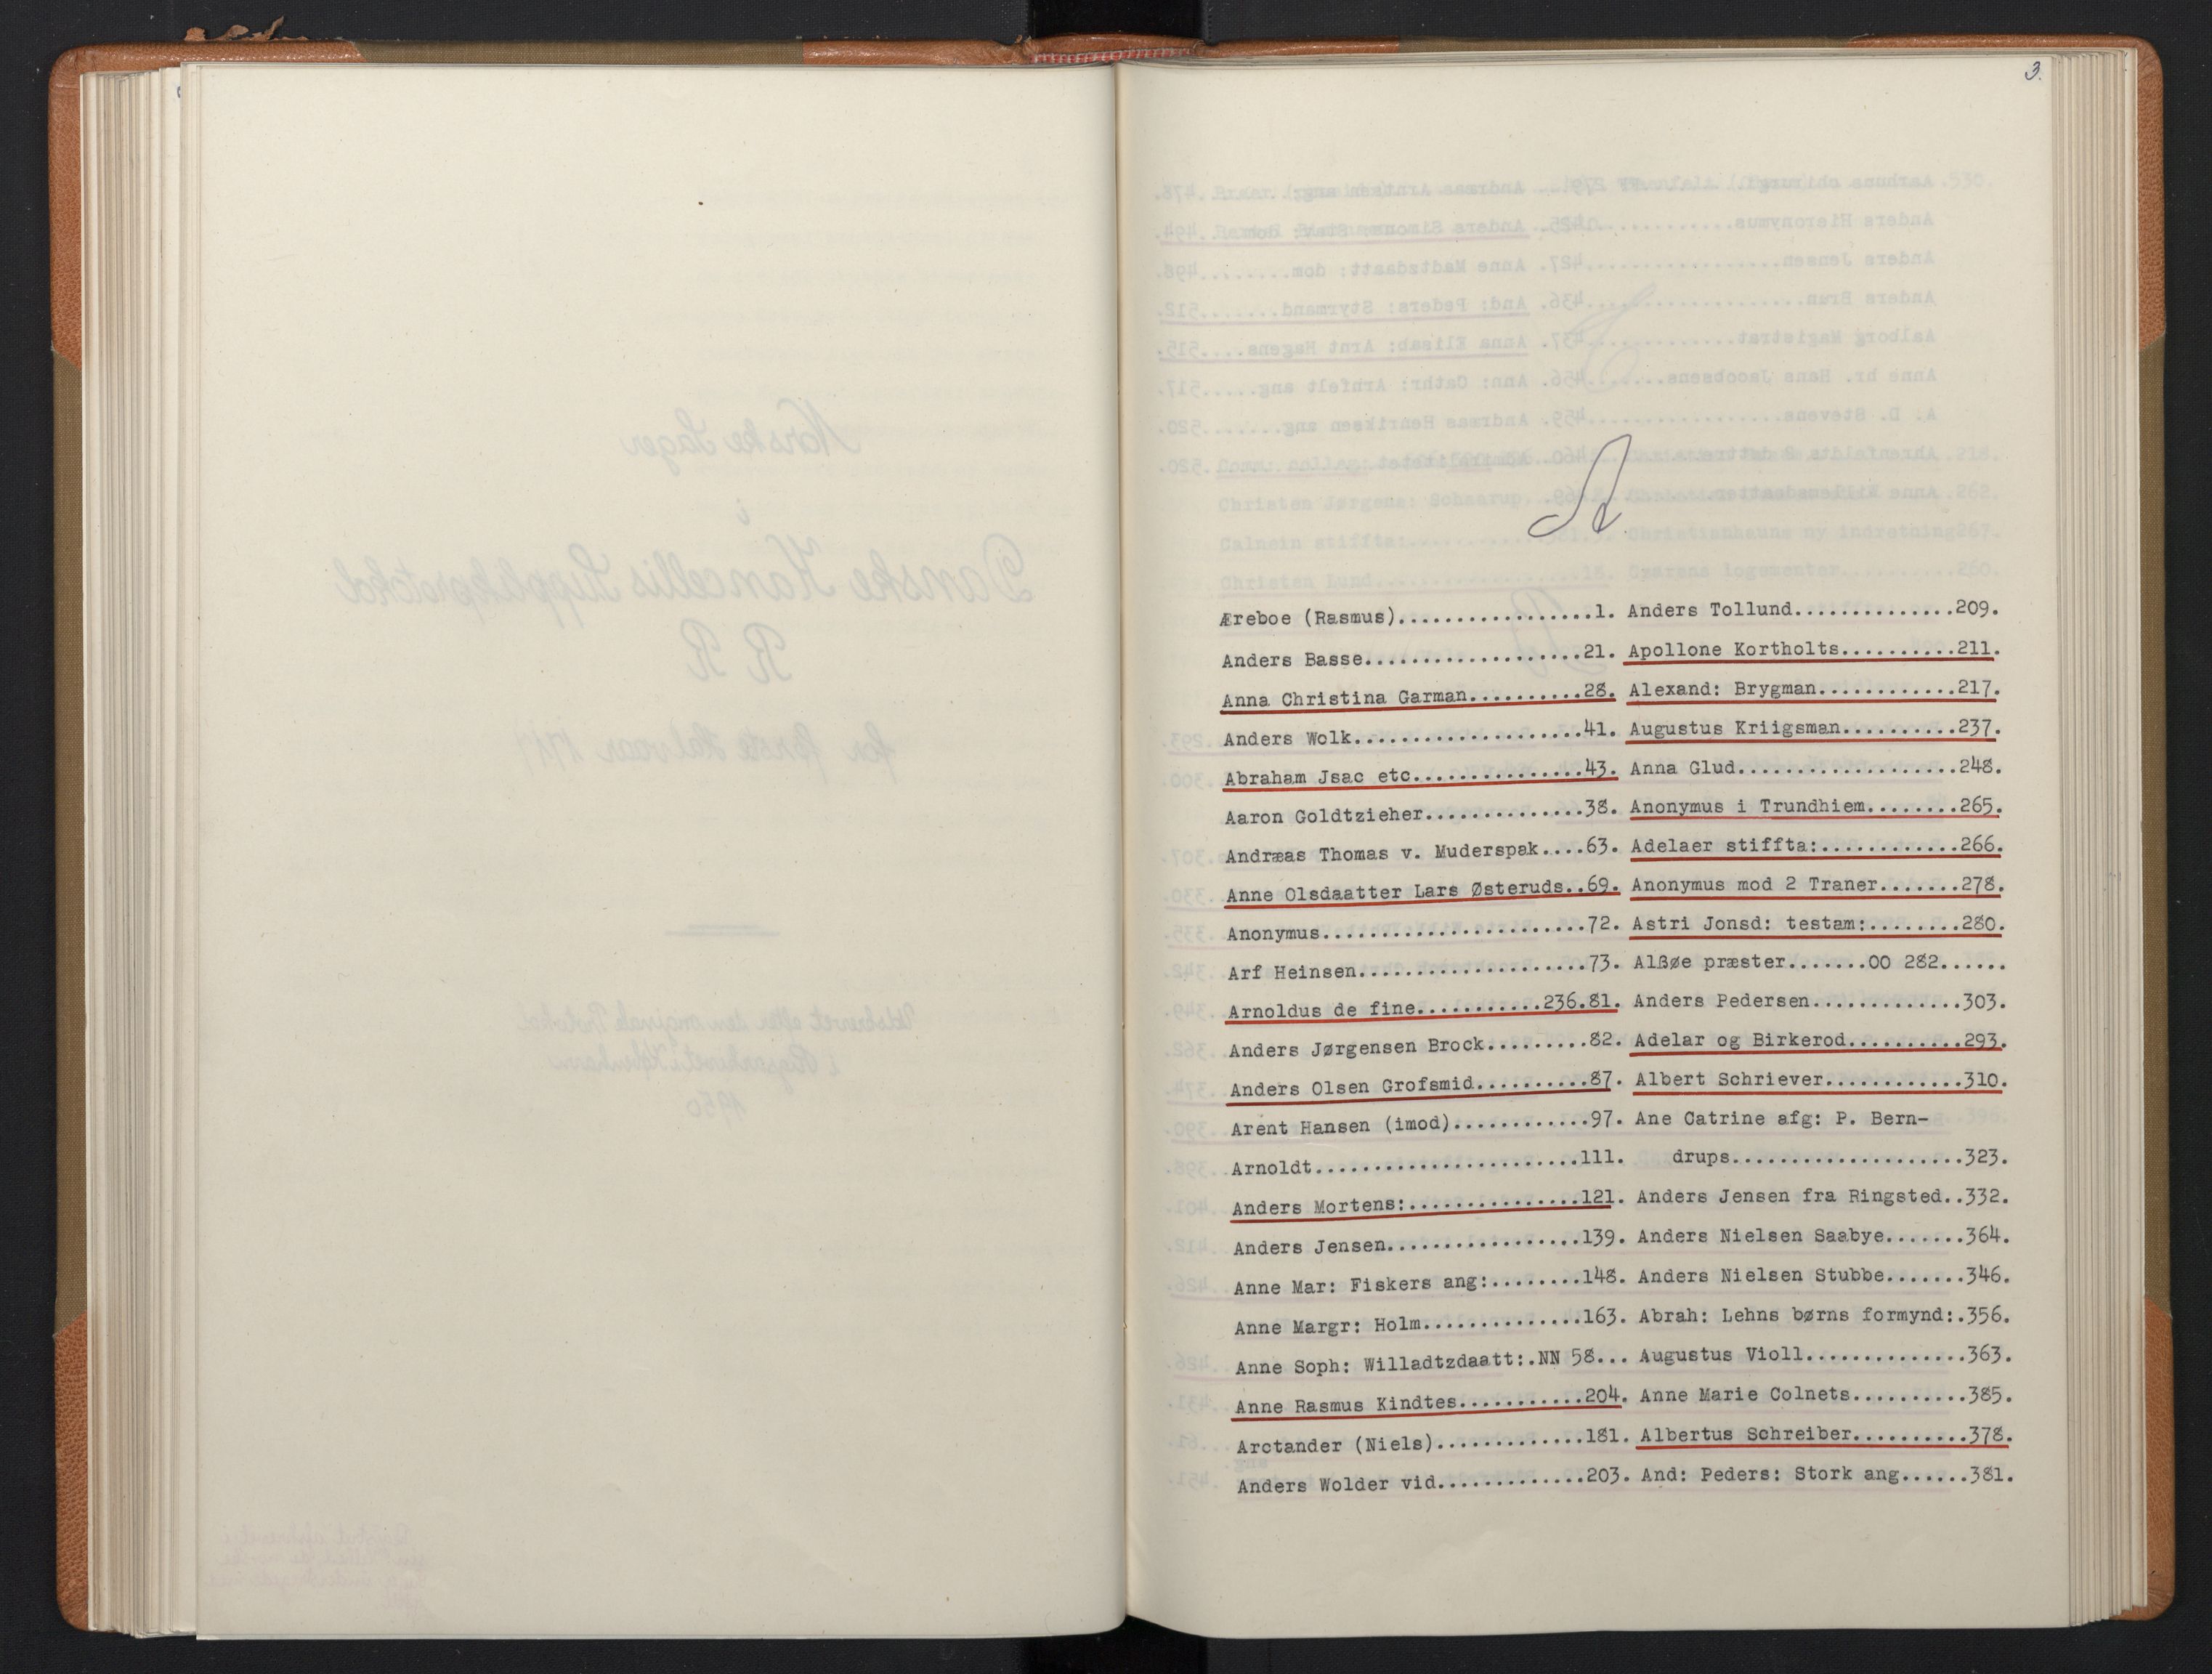 3.
A
Æreboe (Rasmus).................1.
Anders Basse...................21.
Anna Christina Garman..........28.
Anders Wolk....................41.
Abraham Jsac etc...............43.
Aaron Goldtzieher..............38.
Andræas Thomas v. Muderspak....63.
Anne Olsdaatter Lars Østeruds..69.
Anonymus.......................72.
Arf Heinsen....................73.
Arnoldus de fine...........236.81.
Anders Jørgensen Brock.........82.
Anders Olsen Grofsmid..........87.
Arent Hansen (imod)............97.
Arnoldt.......................111.
Anders Mortens:...............121.
Anders Jensen.................139.
Anne Mar: Fiskers ang:........148.
Anne Margr: Holm..............163.
Anne Soph: Willadtzdaatt:.NN 58...
Anne Rasmus Kindtes...........204.
Arctander (Niels).............181.
Anders Wolder vid.............203.
Anders Tollund..............209.
Apollone Kortholts..........211.
Alexand: Brygman............217.
Augustus Kriigsman..........237.
Anna Glud...................248.
Anonymus i Trundhiem........265.
Adelaer stiffta:............266.
Anonymus mod 2 Traner.......278.
Astri Jonsd: testam:........280.
Alßøe præster.......OO 282......
Anders Pedersen.............303.
Adelar og Birkerod..........293.
Albert Schriever............310.
Ane Catrine afg: P. Bern-
drups....................323.
Anders Jensen fra Ringsted..332.
Anders Nielsen Saabye.......364.
Anders Nielsen Stubbe.......346.
Abrah: Lehns børns formynd:.356.
Augustus Violl..............363.
Anne Marie Colnets..........385.
Albertus Schreiber..........378.
And: Peders: Stork ang......381.